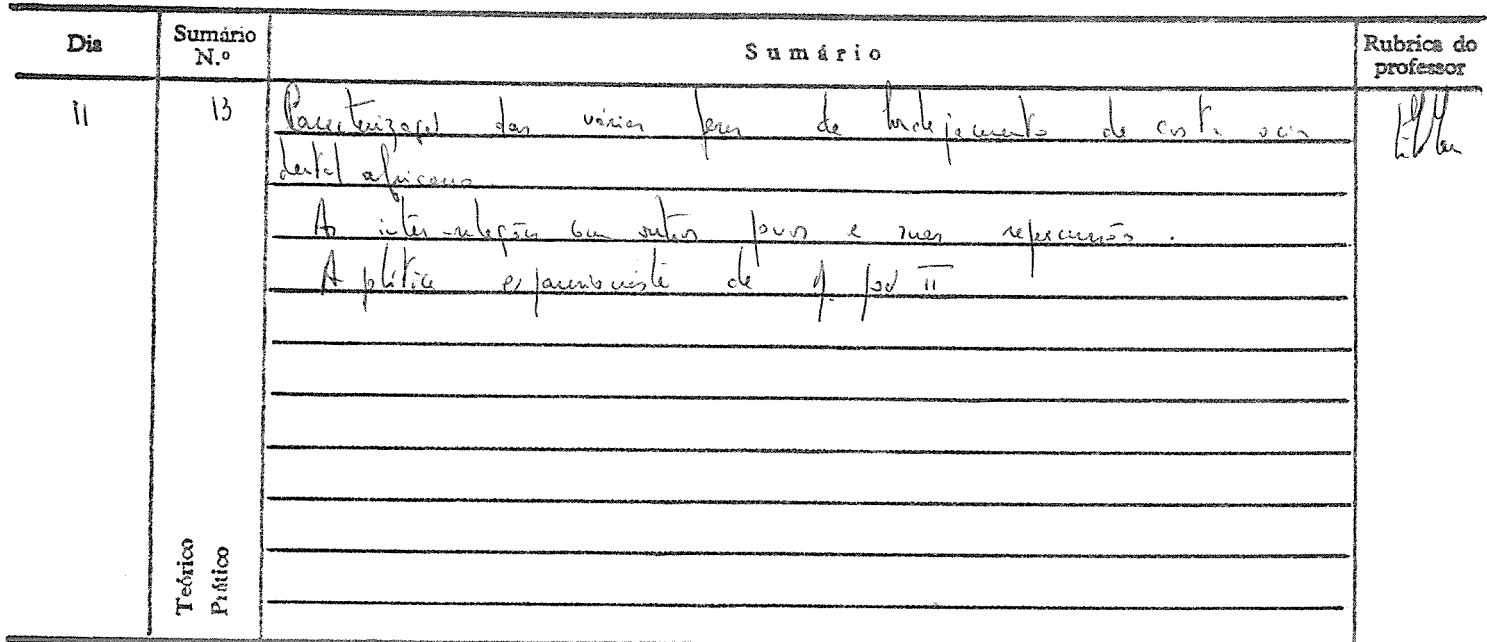 Dia
Sumário N.º
Sumário
Rubrica do professor
11
13
Caracterização das várias fases de bordejamento da costa ociden
dental africana
As inter-relações com outros povos e suas repercussões.
A política expansionista de D. João II
Teórico
Prático